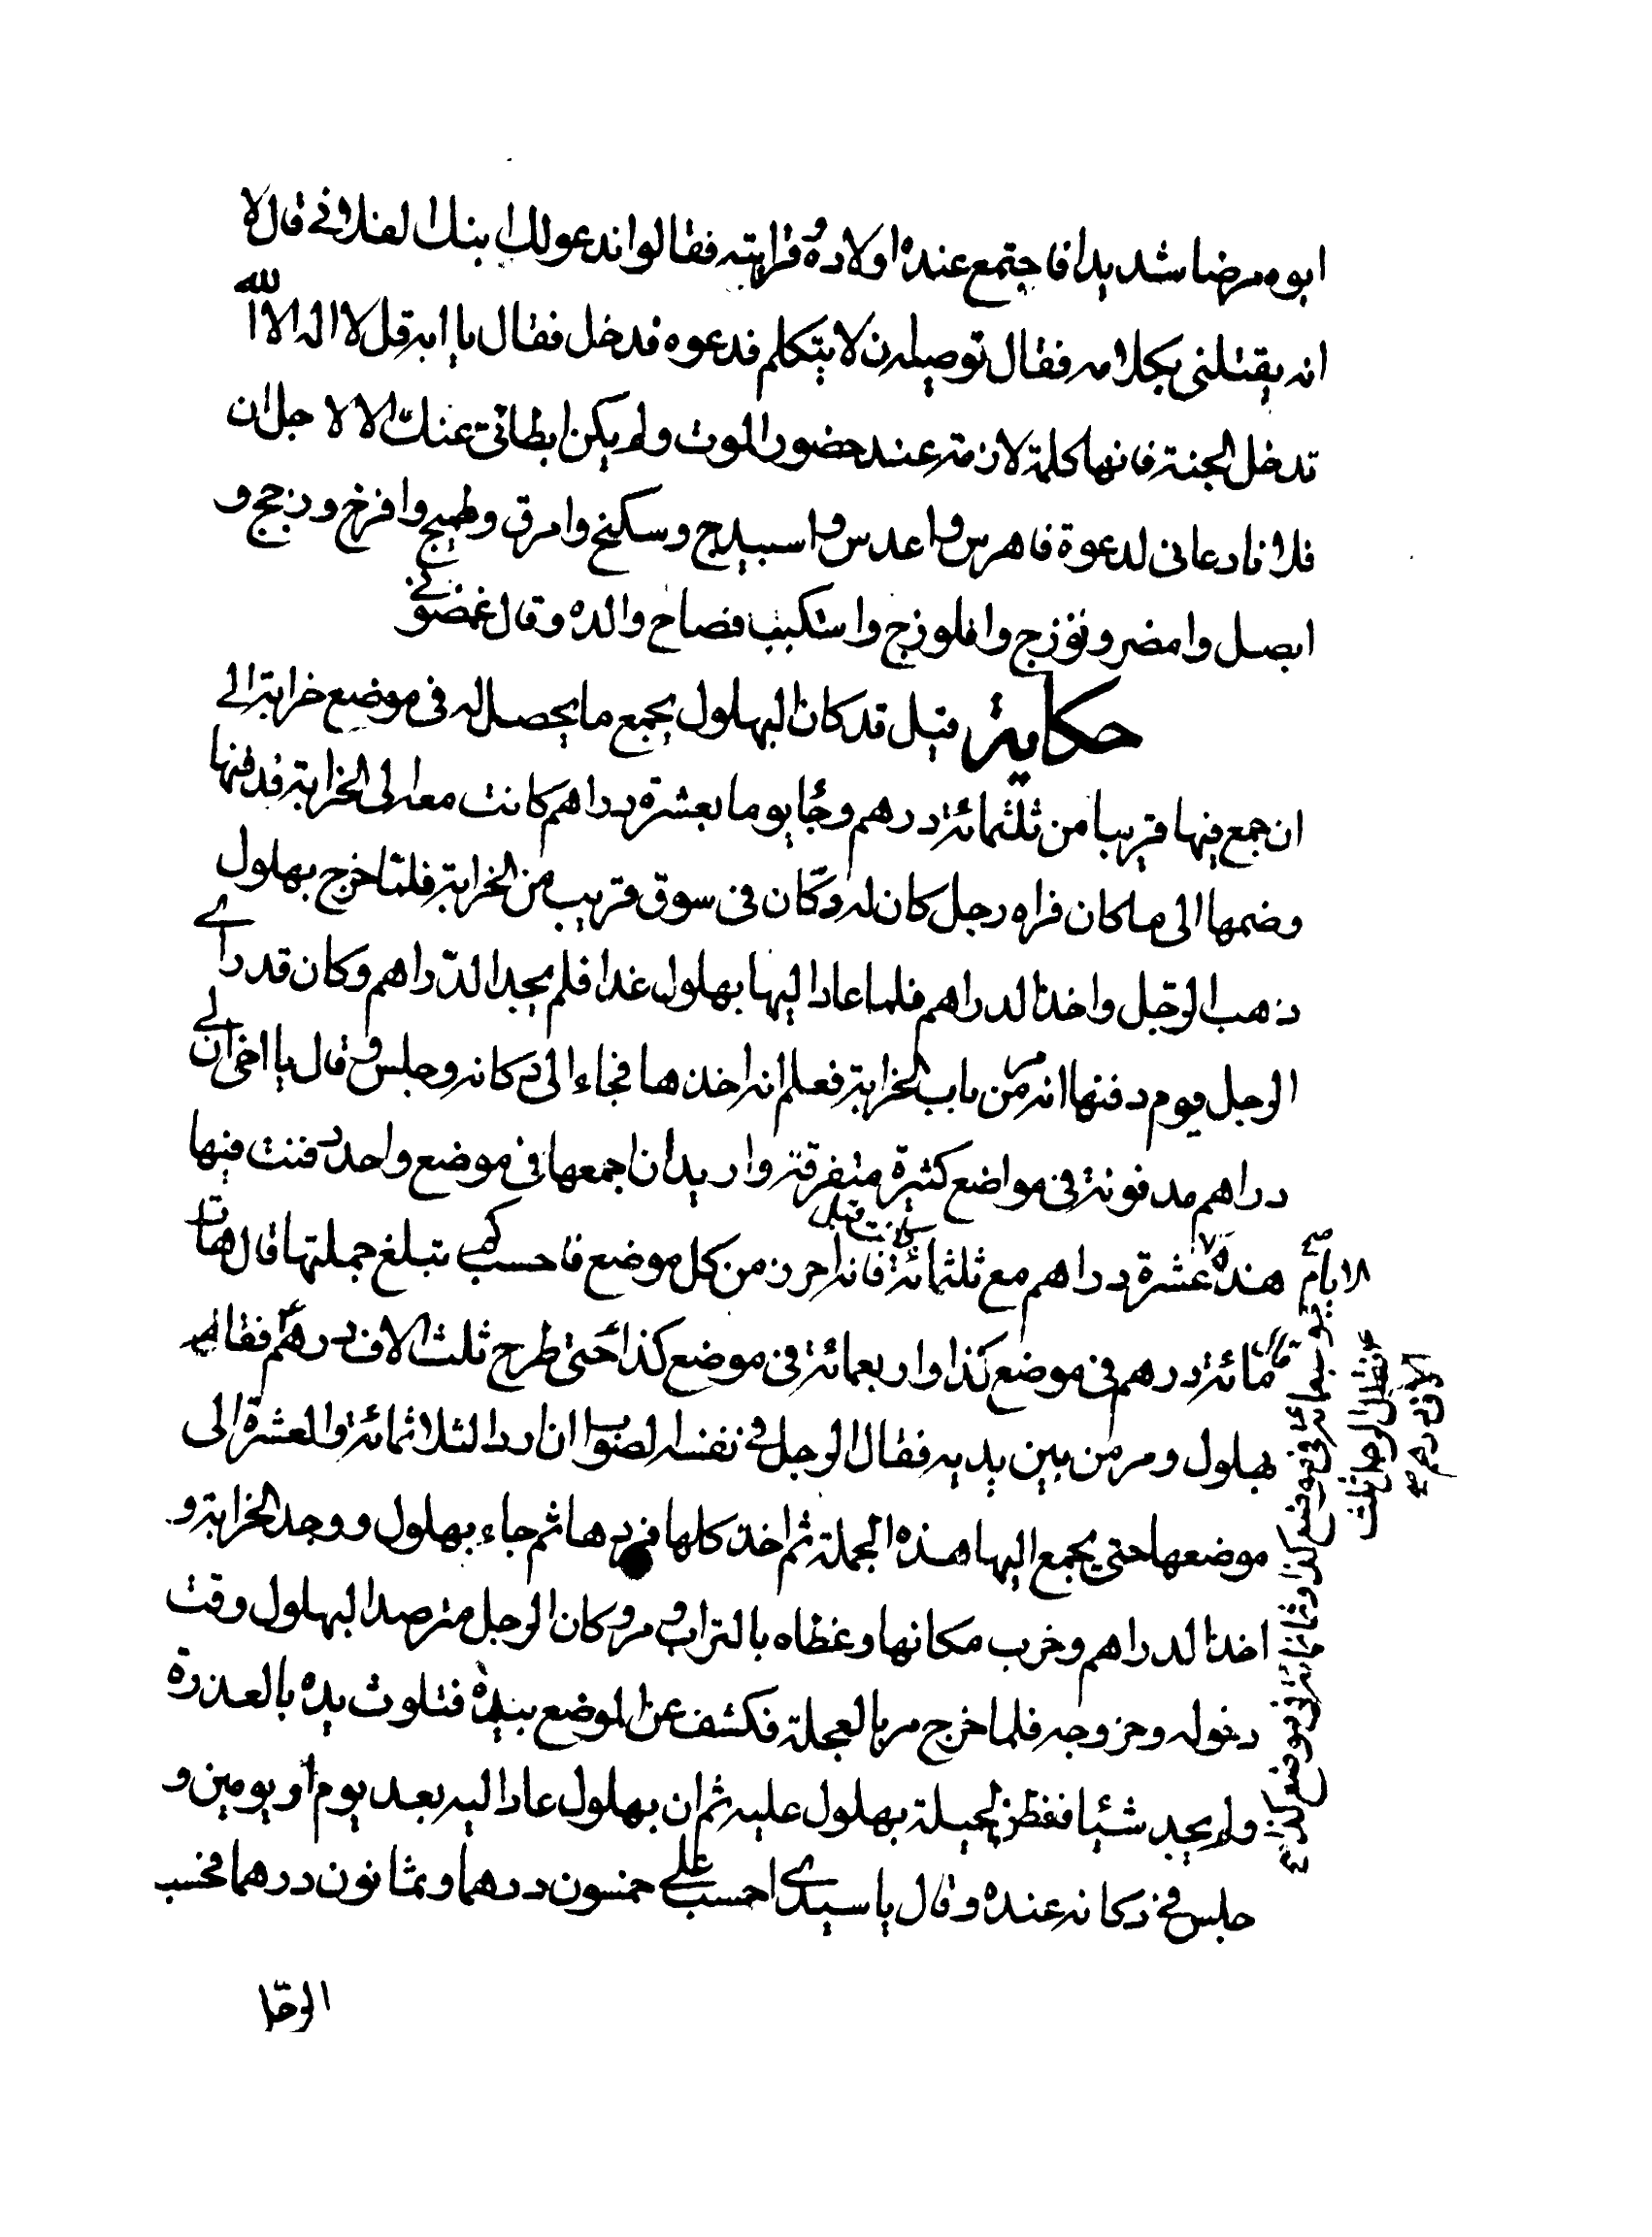 ابوه مرضا شديدا فاجتمع عنده اولاده و قرابته فقالوا ندعو لك ابنك الفلاني قال لا
انه يقتلني بكلامه فقال نوصيه ان لا يتكلم فدعوه فدخل فقال يا ابه قل لا اله الا الله
تدخل الجنة فانها كلمة لازمة عند حضور الموت ولم يكن ابطائي عنك الا لاجل ان
فلانا دعاني لدعوة فاهرس و اعدس و اسبيدج و سكنج وامرق و طهبج وافرخ ودجج و
ابصل وامضر و نوزج وافلوزج واستكبب فصاح والده وقال غمضوني
حكاية قيل قد كان البهلول يجمع ما يحصل له في موضع خرابة الى
ان جمع فيها قريبا من ثلثمائة درهم وجا يوما بعشرة دراهم كانت معه الى الخرابة فدفنها
وضمها الى ما كان فراه رجل كان له دكان في سوق قريب من الخرابة فلما خرج بهلول
ذهب الرجل واخذ الدراهم فلما عاد اليها بهلول غدا فلم يجد الدراهم وكان قد راى
الرجل يوم دفنها انه مر من باب الخرابة فعلم انه اخذها فجاء الى دكانه وجلس و قال يا اخي ان لي
دراهم مدفونة في مواضع كثيرة متفرقة واريد ان اجمعها في موضع واحد دفنت فيها
هذه الايام عشرة دراهم مع ثلثمائة كانت قبل فانه احرز من كل موضع فاحسب كم تبلغ جملتها قال هات
قال مائة درهم في موضع كذا واربعمائة في موضع كذا حتى طرح ثلث الاف درهم فقام
بهلول ومر من بين يديه فقال الرجل في نفسه الصواب ان ارد الثلاثمائة والعشرة الى
موضعها حتى يجمع اليها هذه الجملة ثم اخذ كلها فردها ثم جاء بهلول ووجد الخرابة و
اخذ الدراهم وخرب مكانها وغطاه بالتراب و مر وكان الرجل مترصدا لبهلول وقت
دخوله وخروجه فلما خرج مر بالعجلة فكشف عن الموضع بيده فتلوث يده بالعذرة
ولم يجد شيئا ففطن لحيلة بهلول عليه ثم ان بهلول عاد اليه بعد يوم او يومين و
جلس في دكانه عنده وقال يا سيدي احسب علي خمسون درهما وثمانون درهما فحسب
الرجل
وسبعمائة في موضع كذا وثمانمائة في موضع كذا
فقال الرجل ثلث
الاف درهم